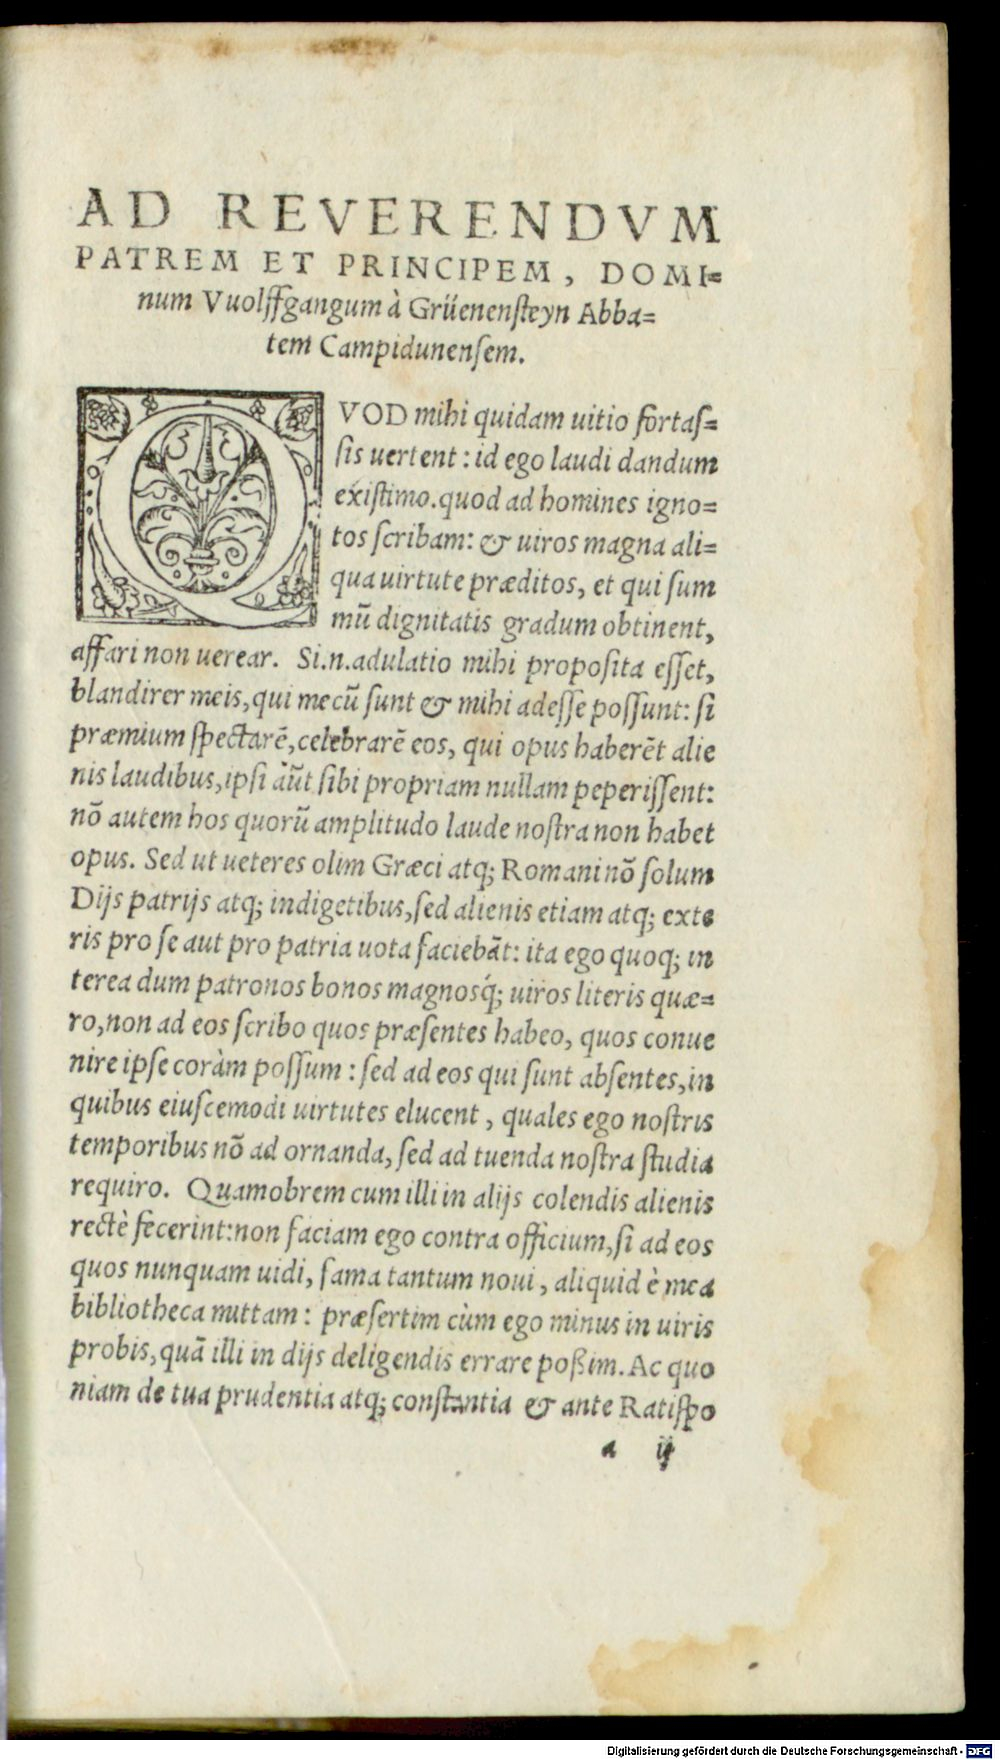 AD REVERENDVM
PATREM ET PRINCIPEM, DOMI=
num Vuolffgangum à Grüenenſteyn Abba=
tem Campidunenſem.
QVOD mihi quidam uitio fortaſ=
ſis uertent: id ego laudi dandum
exiſtimo. quod ad homines igno=
tos ſcribam: & uiros magna ali=
qua uirtute præditos, et qui ſum
mū dignitatis gradum obtinent,
affari non uerear. Si.n.adulatio mihi propoſita eſſet,
blandirer meis, qui mecū ſunt & mihi adeſſe poſſunt: ſi
præmium ſpectarē, celebrarē eos, qui opus haberēt alie
nis laudibus, ipſi aūt ſibi propriam nullam peperiſſent:
nō autem hos quorū amplitudo laude noſtra non habet
opus. Sed ut ueteres olim Græci atq; Romani nō ſolum
Dijs patrijs atq; indigetibus, ſed alienis etiam atq; exte
ris pro ſe aut pro patria uota faciebāt: ita ego quoq; in
terea dum patronos bonos magnosq́; uiros literis quæ=
ro, non ad eos ſcribo quos præſentes habeo, quos conue
nire ipſe coràm poſſum: ſed ad eos qui ſunt abſentes, in
quibus eiuſcemodi uirtutes elucent, quales ego noſtris
temporibus nō ad ornanda, ſed ad tuenda noſtra ſtudia
requiro. Quamobrem cum illi in alijs colendis alienis
rectè fecerint: non faciam ego contra officium, ſi ad eos
quos nunquam uidi, fama tantum noui, aliquid è mea
bibliotheca mittam: præſertim cùm ego minus in uiris
probis, quā illi in dijs deligendis errare poßim. Ac quo
niam de tua prudentia atq; conſtantia & ante Ratiſpo
a ij
Digitalisierung gefördert durch die Deutsche Forschungsgemeinschaft - DFG